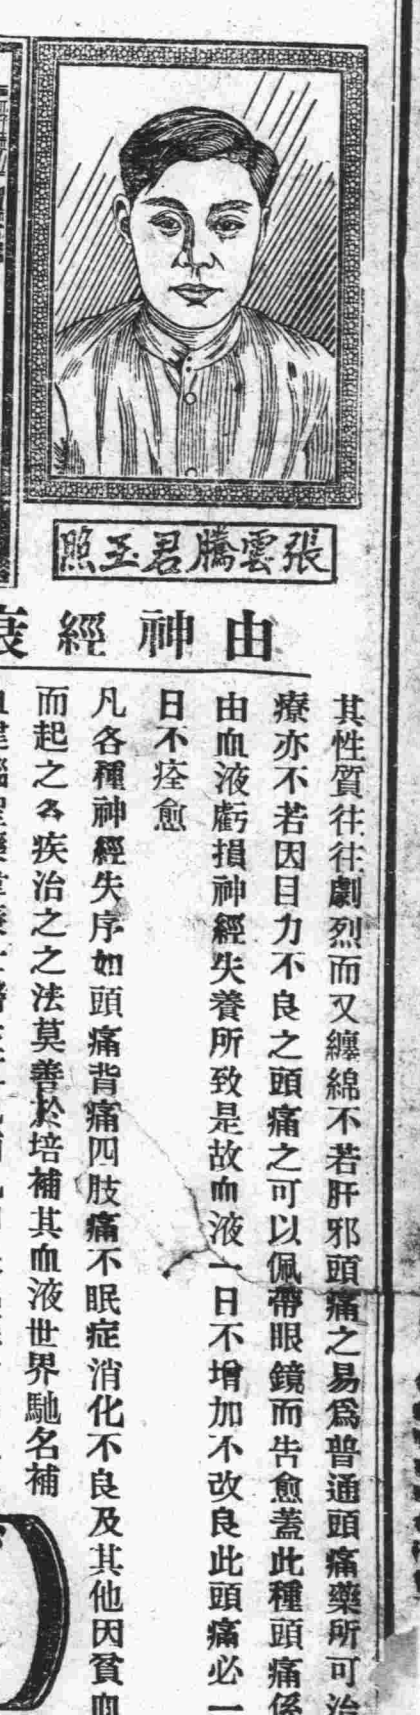 張雲騰君玉照
由神經衰
其性質往往劇烈而又纏綿不若肝邪頭痛之易爲普通頭痛藥所可治
療亦不若因目力不良之頭痛之可以佩帶眼鏡而告愈蓋此種頭痛係
由血液虧損神經失養所致是故血液一日不增加不改良此頭痛必一
日不痊愈
凡各種神經失序如頭痛背痛四肢痛不眠症消化不良及其他因貧血
而起之各疾治之之法莫善於培補其血液世界馳名補